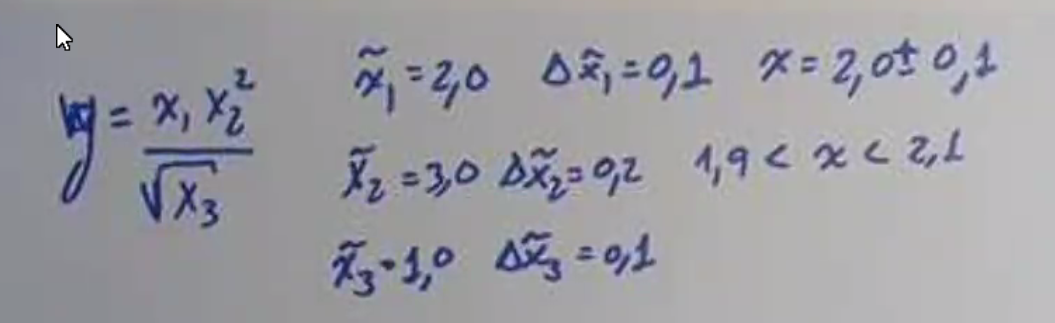 y = x₁ x₂² / √x₃
x̃₁ = 2,0 Δx̃₁ = 0,1 x = 2,0 ± 0,1
x̃₂ = 3,0 Δx̃₂ = 0,2 1,9 < x < 2,1
x̃₃ = 1,0 Δx̃₃ = 0,1